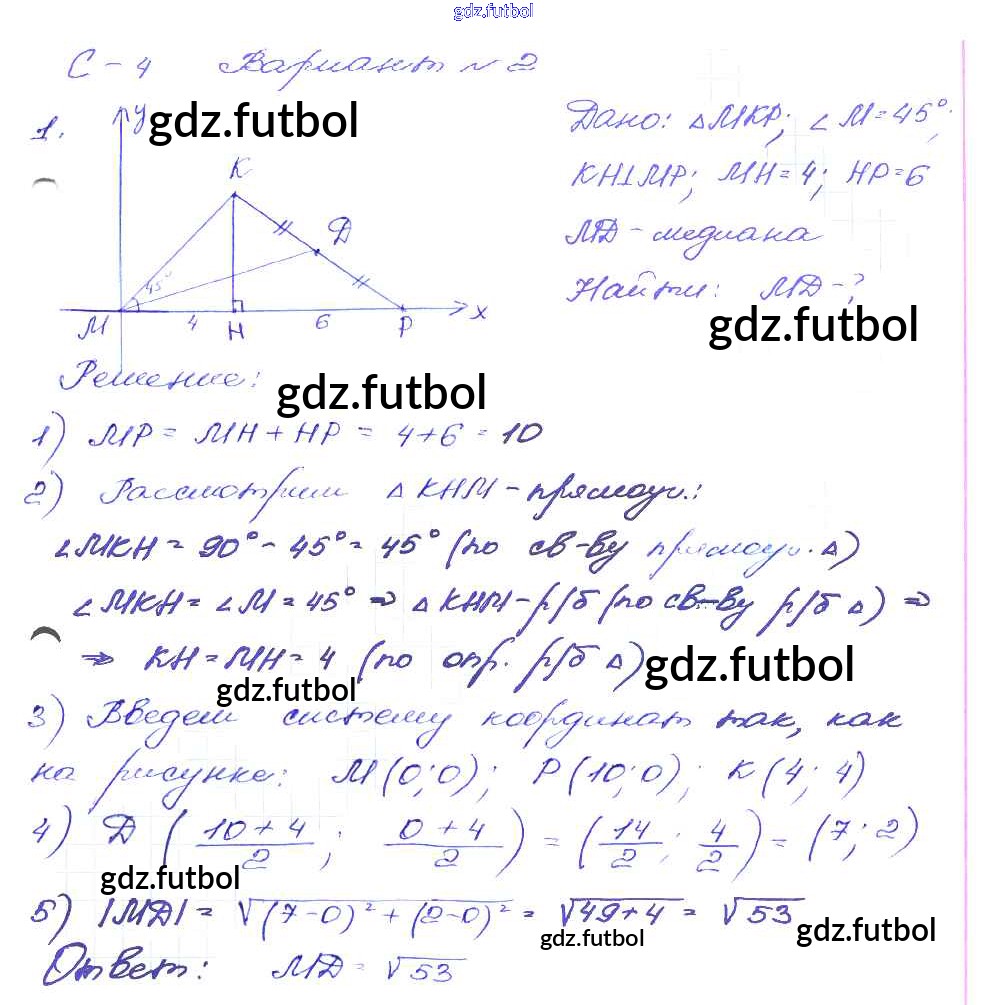 gdz.futbol
С-4 Вариант №2
1.
y gdz.futbol
K
Д
45°
M 4 H 6 P x
Дано: △MKP; ∠M=45°;
KH⊥MP; MH=4; HP=6
МД-медиана
Найти: МД-?
gdz.futbol
Решение:
gdz.futbol
1) MP = MH + HP = 4+6 = 10
2) Рассмотрим △KHM-прямоуг.:
∠MKH = 90° - 45° = 45° (по св-ву прямоуг. △)
∠MKH = ∠M = 45° ⇒ △KHM-р/б (по св-ву р/б △) ⇒
⇒ KH = MH = 4 (по опр. р/б △) gdz.futbol
gdz.futbol
3) Введем систему координат так, как
на рисунке: M(0;0); P(10;0); K(4; 4)
4) Д (10+4/2; 0+4/2) = (14/2; 4/2) = (7; 2)
gdz.futbol
5) |МД| = √(7-0)²+(2-0)² = √49+4 = √53
gdz.futbol gdz.futbol
Ответ: МД = √53